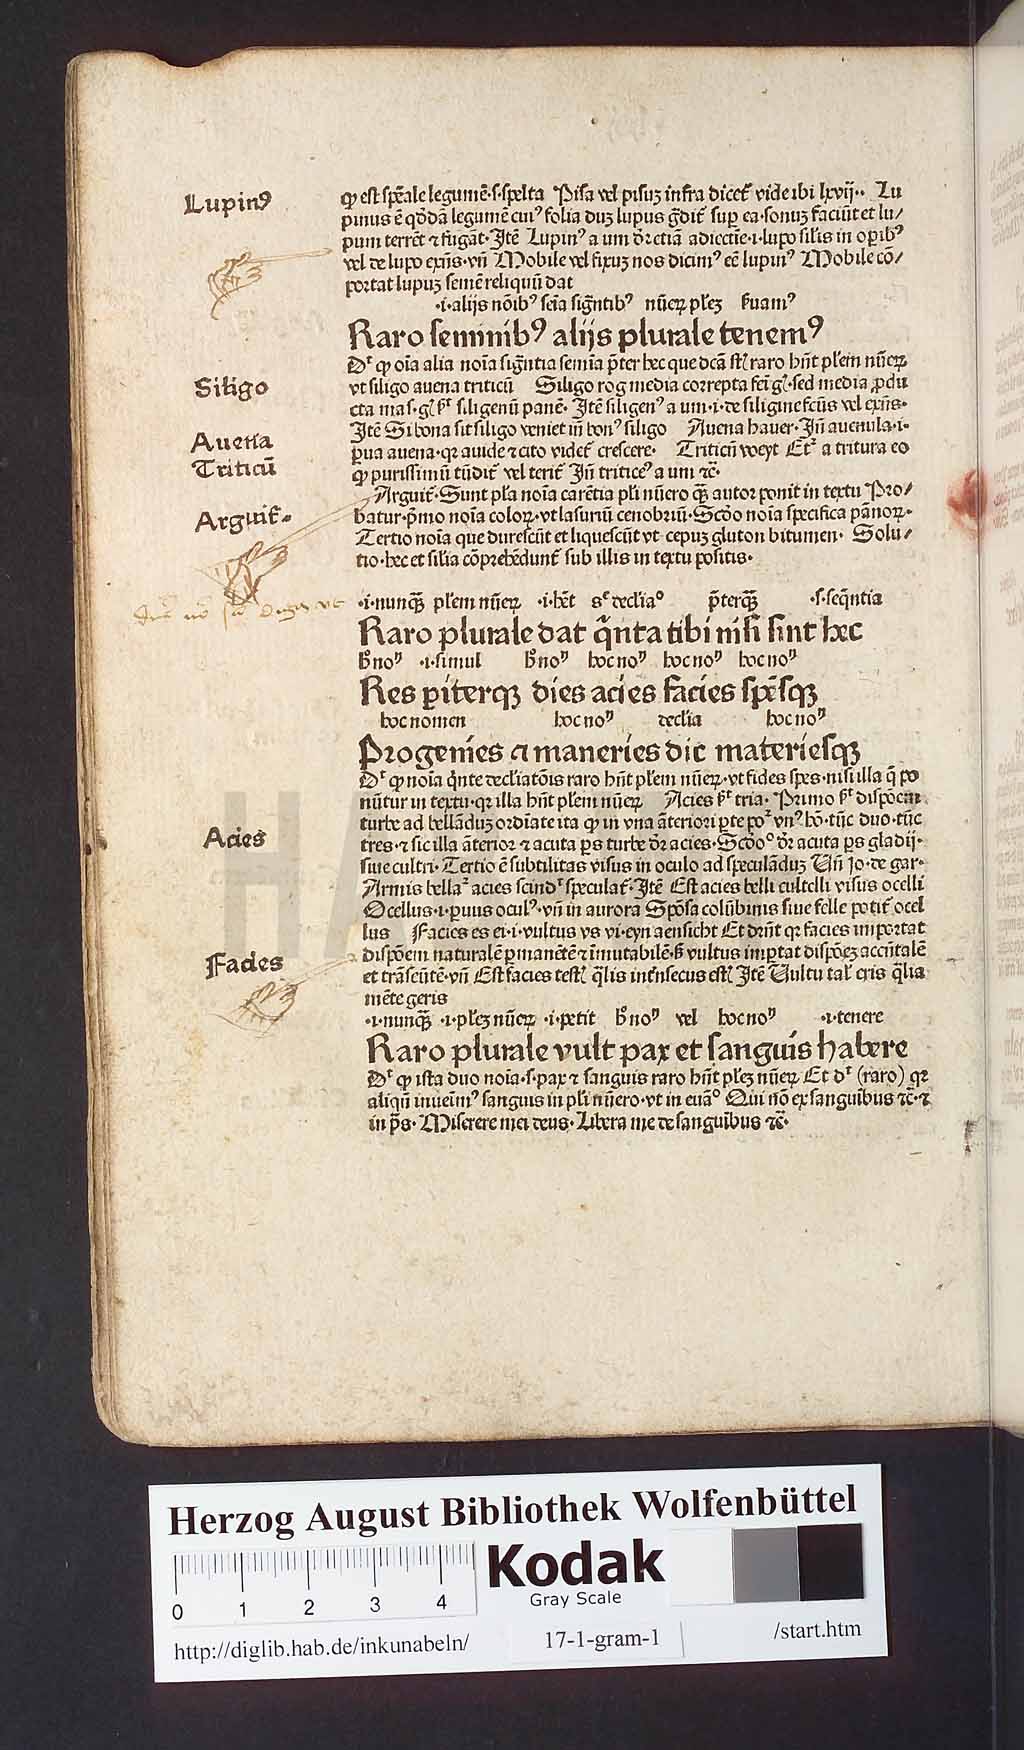 Lupinꝰ
ꝙ est spẽale legumẽ·s·spelta Pisa vel pisuʒ infra dicet᷑ vide ibi lxvij·· Lu
pinus ẽ qd̾dã legumẽ cuiꝰ folia duʒ lupus g̃dit᷑ suꝑ ea·sonuʒ faciũt et lu/
pum terrẽt ⁊ fugãt·Itẽ Lupinꝰ a um
adiectiẽ·i·lupo silis in oꝑibꝰ
vel de lupo exñs·vñ Mobile vel fixuʒ nos dicimꝰ eẽ lupinꝰ Mobile cõ/
portat lupuʒ semẽ reliquũ dat
·i·alijs nõibꝰ seĩa sigñtibꝰ nũeꝝ plʒ
Raro seminibꝰ alijs plurale tenemꝰ
Siligo
Dʳ ꝙ oĩa alia noĩa sigñtia semĩa p̃ter hec que dcã st̃ raro hñt plẽm nũeꝝ
vt siligo auena triticũ Siligo rog media correpta fei᷑ gl̾·sed media ꝓdu
cta mas·gl̾ siligenũ panẽ· Itẽ siligenꝰ a um·i·de siligine fcũs vel exñs·
Auena
Itẽ Si bona sit siligo veniet iñ bonꝰ siligo Auena hauer·Iñ auenula·i·
Triticũ
ꝑua auena·qꝛ auide ⁊ cito videt᷑ crescere· Triticũ weyt Etʳ a tritura eo
ꝙ purissimũ tũdit᷑ vel terit᷑ Iñ triticeꝰ a um ⁊c̃·
Arguit᷑·
Arguit᷑·Sunt pl̃a noĩa carẽtia pl̃i nũero q̃ʒ autor ponit in textu Pro/
batur·p̃mo noĩa coloꝝ·vt lasuriũ cenobriũ·Scd̾o noĩa specifica pãnoꝝ·
Tertio noĩa que durescũt et liquescũt vt cepuʒ gluton bitumen· Solu/
tio·hec et silia cõprehẽdunt᷑ sub illis in textu positis·
·i·nunq̃ʒ plẽm nũeꝝ ·i·hẽt sᵉ decliaᵒ p̃terq̃ʒ ·s·seq̃ntia
Raro plurale dat q̃nta tibi nisi sint hec
h̾ noᵐ ·i·simul h̾ noᵐ hoc noᵐ hoc noᵐ hoc noᵐ
Res ꝑiterqʒ dies acies facies spẽsqʒ
hoc nomen hoc noᵐ declia hoc noᵐ
Progenies ⁊ maneries dic materiesqʒ
Dʳ ꝙ noĩa q̃nte decliatõis raro hñt plẽm nũeꝝ·vt fides spes·nisi illa q̃ po
nũtur in textu·qꝛ illa hñt plẽm nũeꝝ Acies tria· Primo dispõem
Acies
turbe ad bellãduʒ ordĩate ita ꝙ in vna ãteriori ꝑte vnꝰ hõ·tũc duo·tũc
tres·⁊ sic illa ãterior ⁊ acuta ꝑs turbe dr̃ acies·Scd̾oᵒ dr̃ acuta ꝑs gladij·
siue cultri·Tertio ẽ subtilitas visus in oculo ad speculãduʒ Vñ Jo·de gar·
Armis bellaʳ acies scindʳ speculat᷑·Itẽ Est acies belli cultelli visus ocelli
Ocellus·i·ꝑuus oculꝰ·vñ in aurora Spõsa colũbinis siue felle potit᷑ ocel
lus Facies es ei·i·vultus vs vi·eyn aensicht Et drñt qꝛ facies importat
Facies
dispõem naturalẽ ꝑmanẽtẽ ⁊ ĩmutabilẽ· vultus imꝑtat dispõeʒ accñtalẽ
et trãseũtẽ·vñ Est facies test᷑ q̃lis int᷑nsecus est᷑ Itẽ Vultu tal᷑ eris q̃lia
mẽte geris
·i·nunq̃ʒ ·i·pleʒ nũeꝝ ·i·petit h̾ noᵐ vel hoc noᵐ ·i·tenere
Raro plurale vult pax et sanguis habere
Dʳ ꝙ ista duo noĩa·s·pax ⁊ sanguis raro hñt pleʒ nũeꝝ Et dʳ (raro) qꝛ
aliqñ inueimꝰ sanguis in pl̃i nũero·vt in euãᵒ Qui nõ ex sanguĩbus ⁊c̃·⁊
in p̃s·Miserere mei deus·Libera me de sanguĩbus ⁊c̃·
HAB
Herzog August Bibliothek Wolfenbüttel
Kodak
Gray Scale
0 1 2 3 4
http://diglib.hab.de/inkunabeln/ 17-1-gram-1 /start.htm